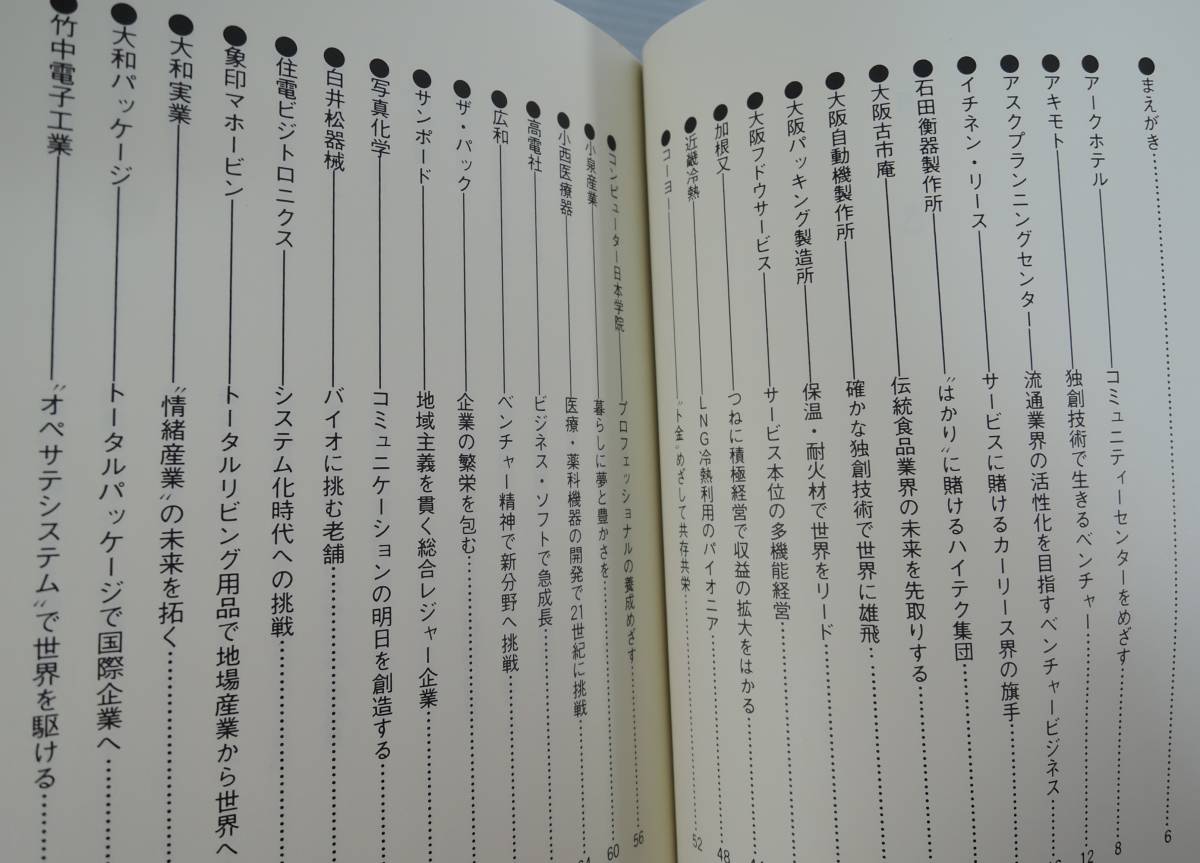 ●まえがき……………………6
●アークホテル――コミュニティーセンターをめざす……8
●アキモト――独創技術で生きるベンチャー……12
●アスクプランニングセンター――流通業界の活性化を目指すベンチャービジネス……
●イチネン・リース――サービスに賭けるカーリース界の旗手……
●石田衡器製作所――〝はかり〟に賭けるハイテク集団……
●大阪古市庵――伝統食品業界の未来を先取りする……
●大阪自動機製作所――確かな独創技術で世界に雄飛……
●大阪パッキング製造所――保温・耐火材で世界をリード……
●大阪フドウサービス――サービス本位の多機能経営……
●加根又――つねに積極経営で収益の拡大をはかる……48
●近畿冷熱――LNG冷熱利用のパイオニア……52
●コーヨー――〝ト金〟めざして共存共栄……
●コンピューター日本学院――プロフェッショナルの養成めざす……56
●小泉産業――暮らしに夢と豊かさを……60
●小西医療器――医療・薬科機器の開発で21世紀に挑戦……
●高電社――ビジネス・ソフトで急成長……
●広和――ベンチャー精神で新分野へ挑戦……
●ザ・パック――企業の繁栄を包む……
●サンポード――地域主義を貫く総合レジャー企業……
●写真化学――コミュニケーションの明日を創造する……
●白井松器械――バイオに挑む老舗……
●住電ビジトロニクス――システム化時代への挑戦……
●象印マホービン――トータルリビング用品で地場産業から世界へ
●大和実業――〝情緒産業〟の未来を拓く……
●大和パッケージ――トータルパッケージで国際企業へ……
●竹中電子工業――〝オペサテシステム〟で世界を駆ける……